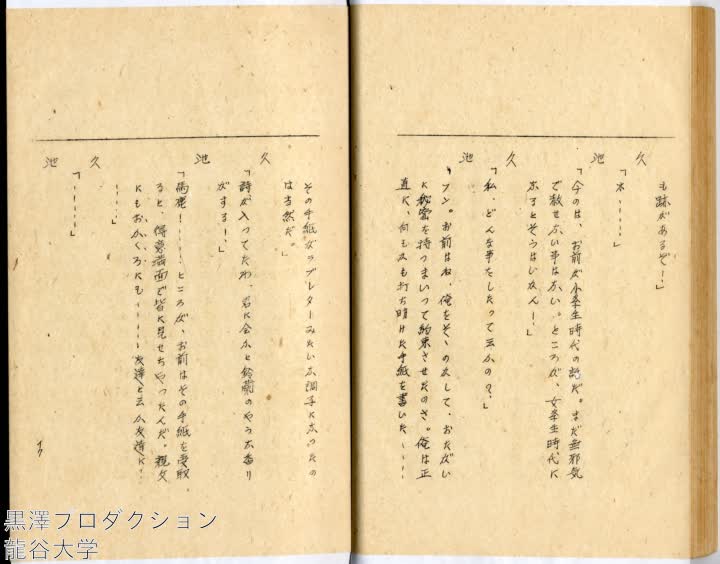 も跡があるぞ……」
久「ホ……」
池「今のは、お前が小学生時代の話だ。まだ無邪気
で赦せない事はない。ところが、女学生時代に
なるとそうはいかん……」
久「私、どんな事をしたって云ふの?」
池「フン。お前はね、俺をそゝのかして、おたがい
に秘密を持つまいって約束させたのさ。俺は正
直に、何もかも打ち明けた手紙を書いた……
その手紙がラブレターみたいな調子になったの
は当然だ。」
久「詩が入ってたわ、君に会ふと鈴蘭のやうな香り
がする……」
池「馬鹿!……ところが、お前はその手紙を受取
ると、得意満面で皆に見せちゃったんだ。親父
にもおふくろにも……友達と云ふ友達に…
……」
久「……」
池
17
黒澤プロダクション
龍谷大学